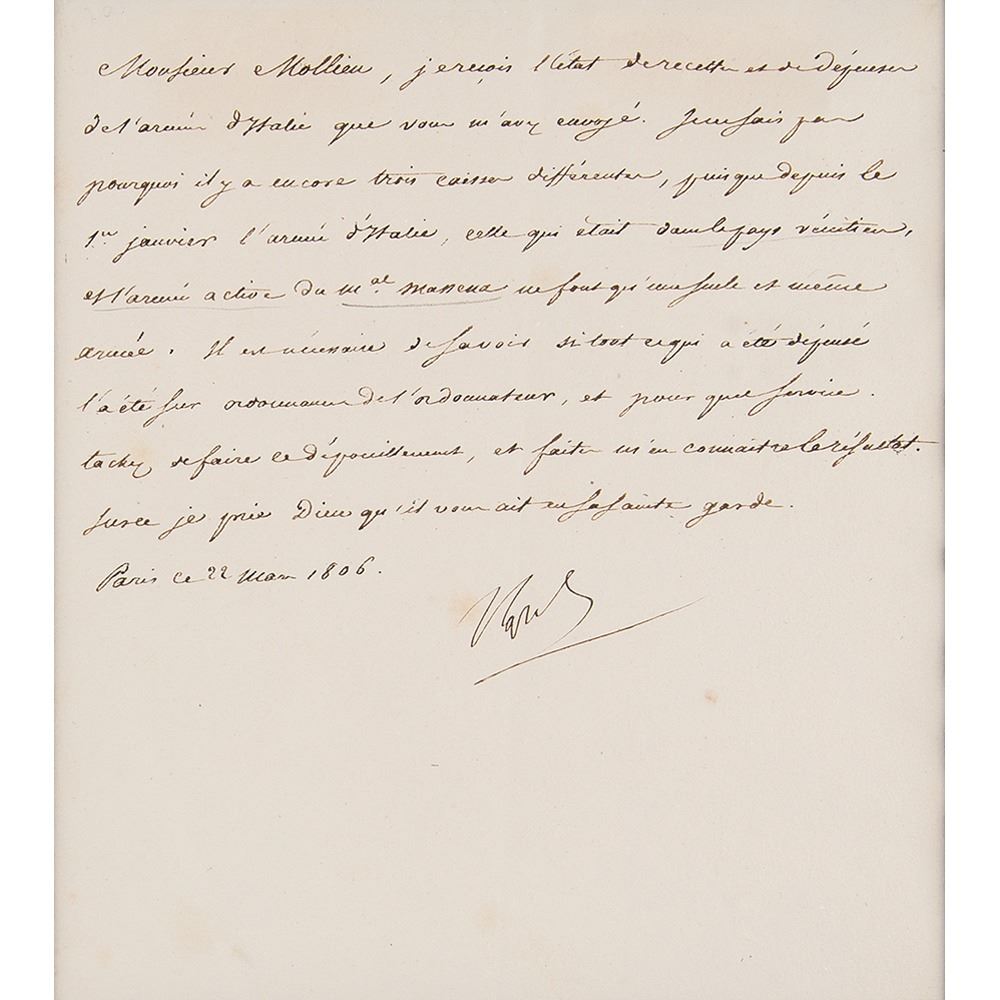 Monsieur Mollien, je reçois l'état de recettes et de dépenses
de l'armée d'Italie que vous m'avez envoyé. Je ne sais pas
pourquoi il y a encore trois caisses différentes, puisque depuis le
1er janvier l'armée d'Italie, celle qui était dans le pays vénitien,
et l'armée active du mal Massena ne font qu'une seule et même
armée. Il est nécessaire de savoir si tout ce qui a été dépensé
l'a été sur ordonnances de l'ordonnateur, et pour quel service.
tachez de faire ce dépouillement, et faites m'en connaitre le résultat.
sur ce je prie Dieu qu'il vous ait en sa sainte garde.
Paris ce 22 Mars 1806.